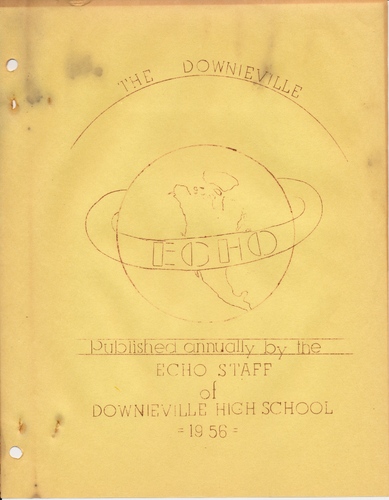 THE DOWNIEVILLE
ECHO
Published annually by the
ECHO STAFF
of
DOWNIEVILLE HIGH SCHOOL
=1956=